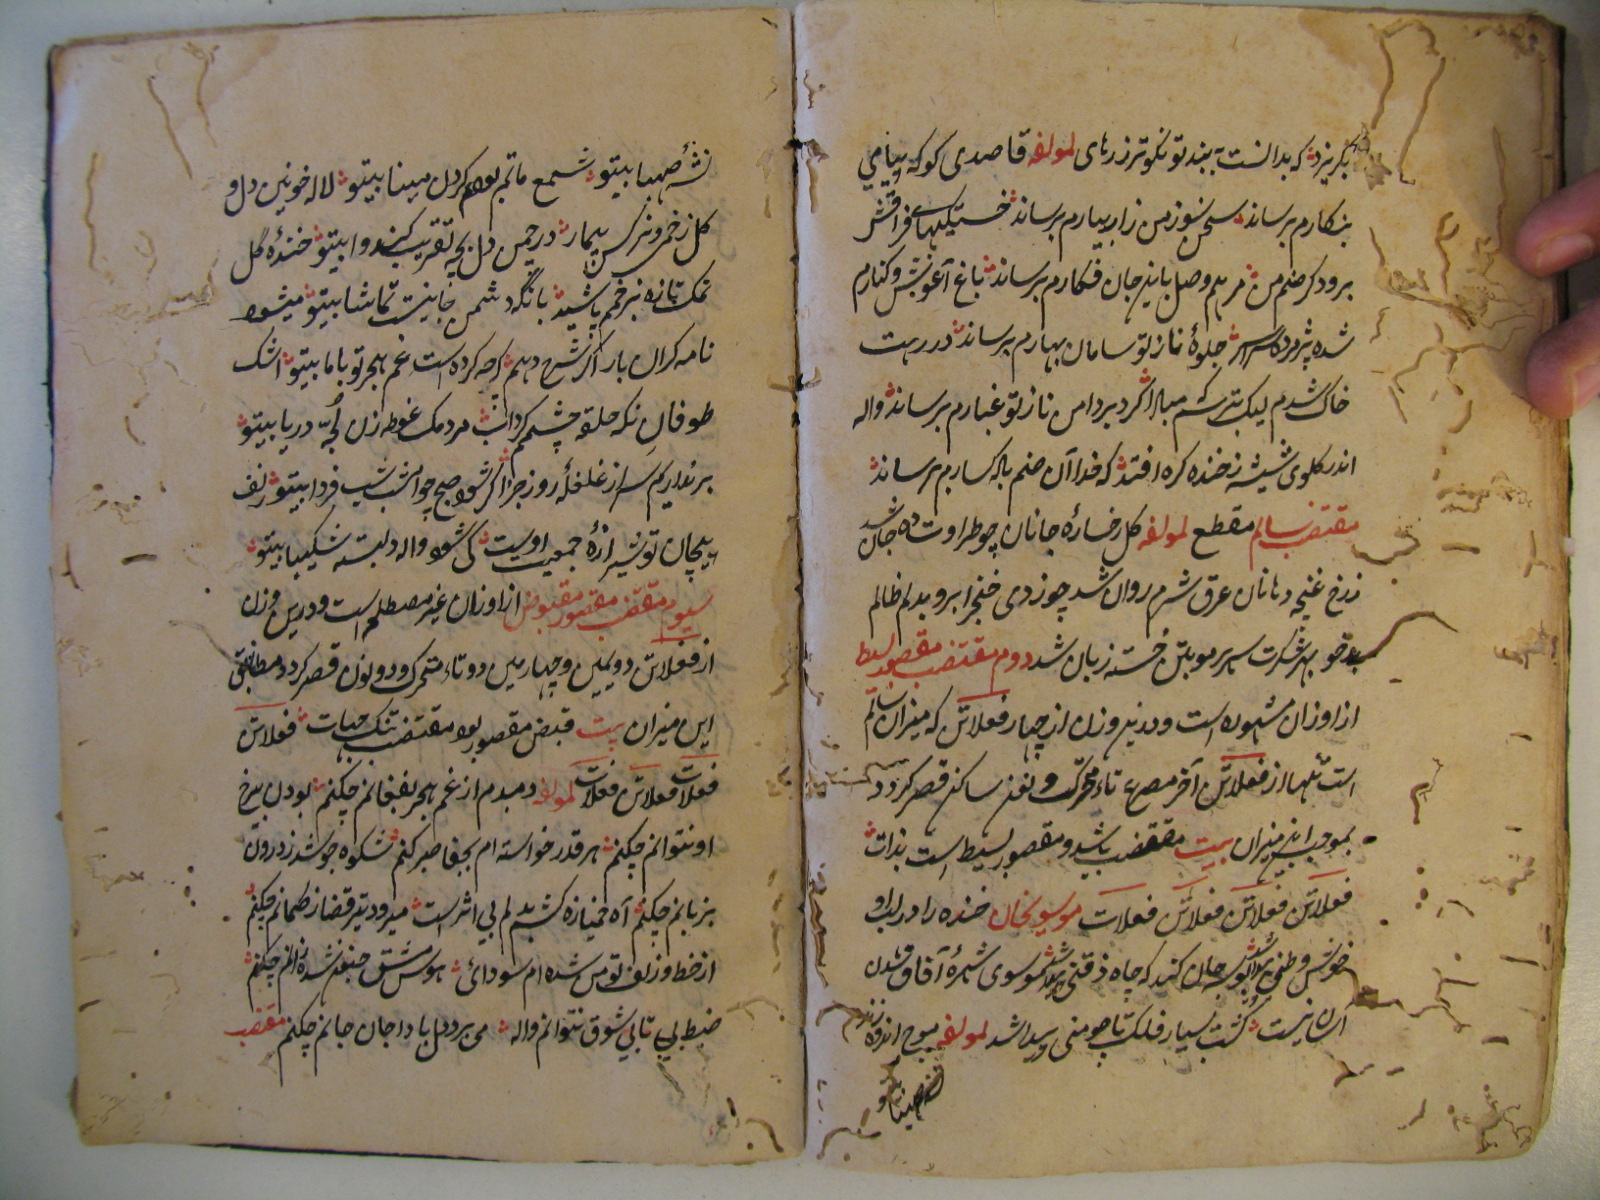 بگریزد که بدانست به بند تو نکوتر ز رهای لمولفه قاصدی کو که پیامی
بنکارم برساند سخن سوز من زار بیارم برساند خستگیهای فراقش
برود کر ضنم من مرهم وصل باین جان فکارم برساند باغ آغوش و کنارم
شده پژمرده سراسر جلوهٔ ناز تو سامان بهارم برساند در رهت
خاک شدم لیک بترسم مبادا کرد بر دامن ناز تو غبارم برساند واله
اندر کلوی شیشه ز خنده کره افتد که خدا آن صنم باده کسارم برساند
مقتضب سالم مقطع لمولفه کل رخساره جانان چو طراوت ده جان شد
ز رخ غنچه دهانان عرق شرم روان شد چو زدی خنجر ابرو بدلم ظالم
بدخو بهر شکرت سر هر مو بتن خسته زبان شد دوم مقتضب مقصور بسیط
از اوزان مشهوره است و درین وزن از چهار فعلاتن که میزان سالم
است تنها از فعلاتن آخر مصرع تاء متحرک و نون ساکن قصر کردد
بموجب این میزان بیت مقتضب باشد و مقصور بسیط است بذات
فعلاتن فعلاتن فعلاتن فعلات موسویخان خنده را در لب او
خوش وطنی پیدا شد بوسه جان کند که چاه ذقنی پیدا شد موسوی شهرهٔ آفاق شدن
آسان نیست کشت بسیار فلک تا چو منی پیدا شد لمولفه موج اندوه زند
نشه صهبا بیتو
نشهٔ صهبا بیتو شمع ماتم بودم کردل مینا بیتو لاله خونین دل و
کل زخمی و نرکس بیمار در چمن دل بچه تقریب کند وا بیتو خندهٔ گل
نمک تازه بزخم پاشید بانگ دشمن جانیست تماشا بیتو میشود
نامه کران بار اکر شرح دهم آنچه کرده است غم هجر تو با ما بیتو اشک
طوفان نکه حلقه چشمم کرداب مردمک غوطه زن لجهٔ دریا بیتو
بر نداریم سر از غلغلهٔ روز جزا کر شود صبح چو امشب شب فردا بیتو زلف
پیچان تو شیرازهٔ جمعیت اوست کی شود واله دلبسته شکیبا بیتو
سیوم مقتضب مقصور مقبوض از اوزان غیر مصطلحه است و درین وزن
از فعلاتن دویمین و چهارمین دو تاء متحرک و دو نون قصر کردد مطابق
این میزان بیت قبض مقصور بود مقتضب تنک حیات فعلاتن
فعلات فعلاتن فعلات لمولفه دمبدم از غم هجر بفغانم چکنم بودن بیرخ
او نتوانم چکنم هر قدر خواسته ام بجفا صبر کنم شکوه جوشد ز درون
بزبانم چکنم آه خمیازه کشیدم لم بی اثر است میرود تیر قضا ز کمانم چکنم
از خط و زلف تو من شده ام سودائی هوس مشق جنونم شده زانم چکنم
ضبط بی تابی شوق نتوانم واله می برد دل با دا جان جانم چکنم مقتضب